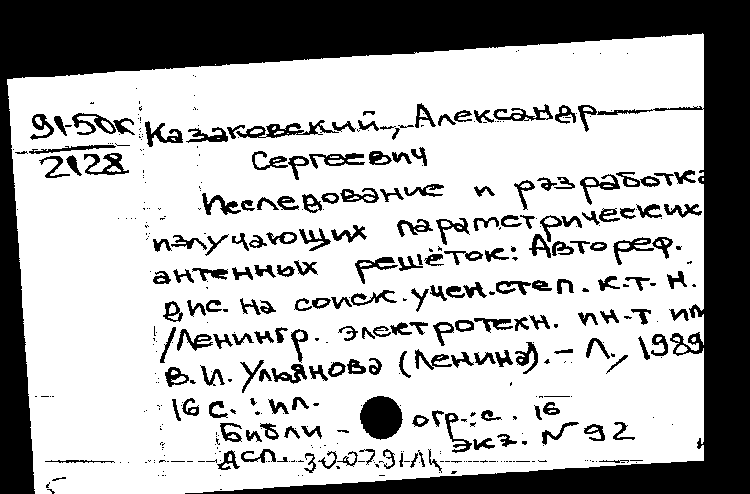 91-50к
2128
Казаковский, Александр
Сергеевич
Исследование и разработка
излучающих параметрических
антенных решёток: Автореф.
дис. на соиск. учен. степ. к.т.н.
/Ленингр. электротехн. ин-т им
В.И. Ульянова (Ленина). – Л., 1989
16 с. : ил.
Библи – огр.: с. 16
дсп. экз. N 92
30.07.91